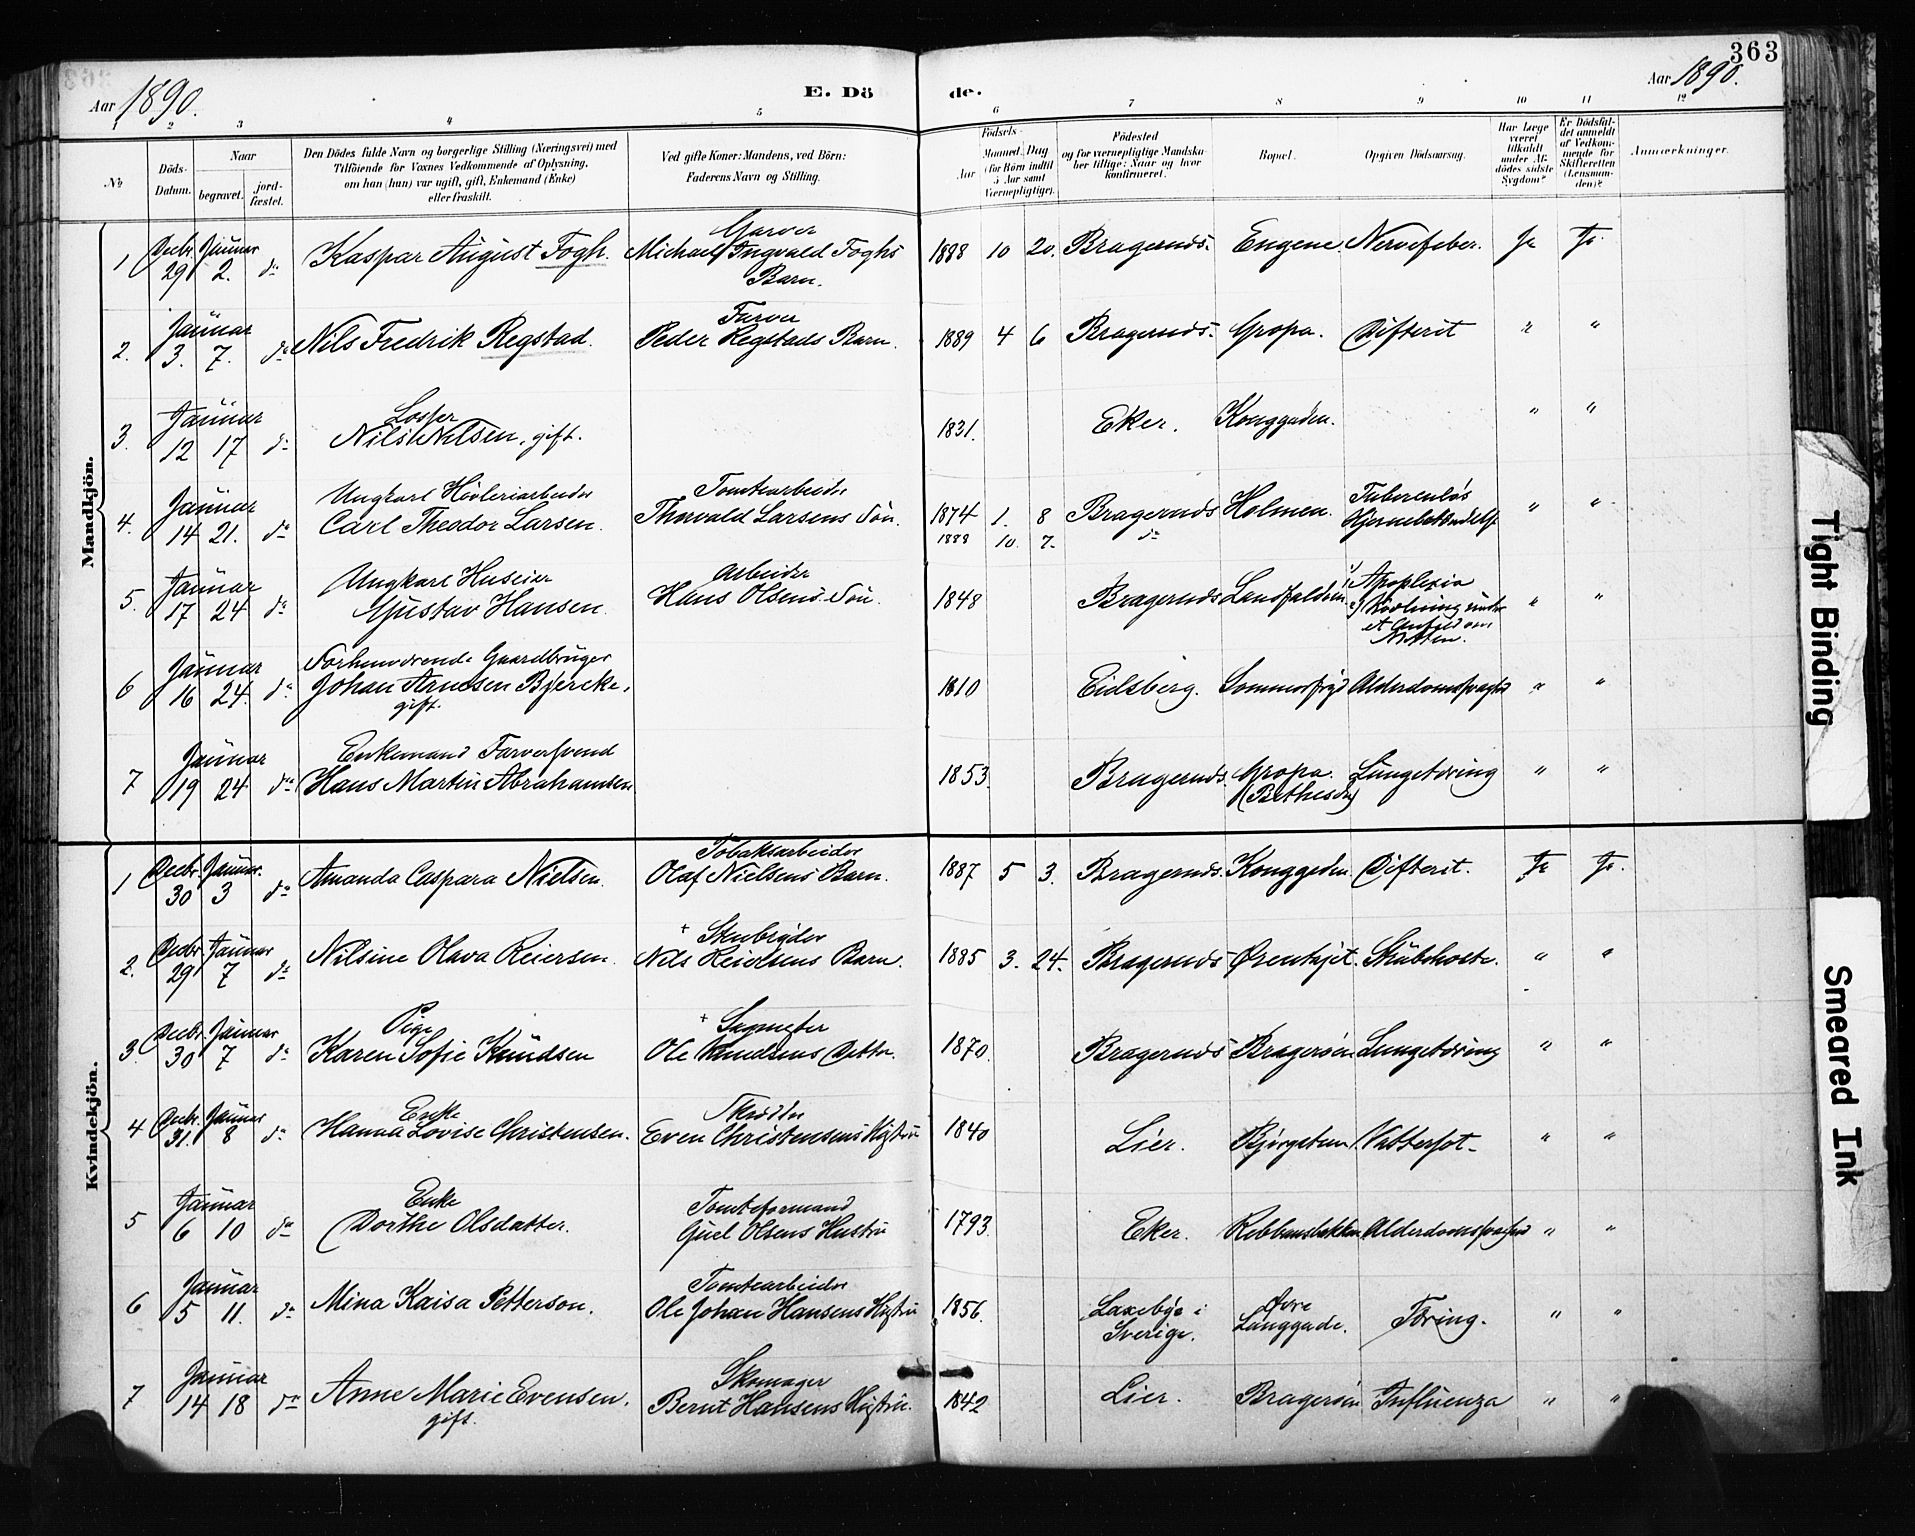 363
Aar 1890.
E. Dö de.
Aar 1890.
1 2 3 4 5 6 7 8 9 10 11 12
No.
Döds-Datum.
Naar
begravet.
jord-fæstet.
Den Dödes fulde Navn og borgerlige Stilling (Næringsvei) med
Tilföiende for Voxnes Vedkommende af Oplysning,
om han (hun) var ugift, gift, Enkemand (Enke)
eller fraskilt.
Ved gifte Koner: Mandens, ved Börn:
Faderens Navn og Stilling.
Födsels-
Aar
Maaned Dag
(for Börn indtil
5 Aar samt
Værnepligtige).
Födested
og for værnepligtige Mandska-
ber tillige: Naar og hvor
konfirmeret.
Bopæl.
Opgiven Dödsaarsag.
Har Læge
været
tilkaldt
under Af-
dödes sidste
Sygdom?
Er Dödsfal-
det anmeldt
af Vedkom-
mende for
Skifteretten
(Lensman-
den)?
Anmærkninger.
Mandkjön.
Decbr. Januar Garver
1 29 2. do Kaspar August Fogh. Michael Ingvald Foghs 1888 10 20. Bragernæs. Engene Nervefeber. Ja Ja.
Barn.
Januar Farver
2. 3. 7. do Nils Fredrik Regstad. Peder Regstads Barn. 1889 4 6 Bragernæs. Gropa. Difterit " "
Januar Losser
3. 12 17 do Nils Nilsen, gift. 1831. Eker. Konggaden. " "
Januar Ungkarl Høvleriarbeider Tomtearbeider Tuberculøs
4. 14 21. do Carl Theodor Larsen. Thorvald Larsens Søn. 1874 1. 8 Bragernæs Holmen. " "
1888 10. 7. do
Januar Ungkarl Huseier Arbeider 1) Apoplexia
5. 17 24 do Gustav Hansen. Hans Olsens Søn. 1848 Bragernæs 2) Kvælning under " "
et Anfald om
Natten.
Januar Forhenværende Gaardbruger
6 16 24. do Johan Arnesen Bjercke, 1810 Eidsberg. Sommerfryd Alderdomssvaghed " "
gift.
Januar Enkemand Farversvend
7 19 24 do Hans Martin Abrahamsen 1853. Bragernæs. Gropa. Lungetæring " "
(Bethesda)
Kvindekjön.
Decbr. Januar. Tobaksarbeider
1 30 3 do Amanda Caspara Nielsen. Olaf Nielsens Barn. 1887 5 3. Bragernæs. Konggaden. Difterit. Ja Ja.
Decbr. Januar +
2. 29 7 do Nilsine Olava Reiersen. Nils Reiersens Barn. 1885 3. 24. Bragernæs Strubehoste. " "
Decbr. Januar Pige +
3. 30 7 do Karen Sofie Knudsen Ole Knudsens Datter. 1870. Bragernæs Bragerøen Lungetæring " "
Decbr. Januar Enke Skrædder
4 31. 8 do Hanna Lovise Christensen. Even Christensens Hustru 1840 Lier. Vattersot. " "
Januar Enke Tomteformand
5 6 10 do Dorthe Olsdatter. Olsens Hustru 1793. Eker. Alderdomssvaghed " "
Januar Tomtearbeider
6 5 11. do Mina Kaisa Petterson. Ole Johan Hansens Hustru 1856. Laxebye i Øvre Tæring. " "
Sverige. Langgade.
Januar Skomager
7 14 18 do Anne Marie Evensen. Bernt Hansens Hustru. 1842 Lier. Bragerøen Influenza " "
gift.
Tight Binding
Smeared Ink